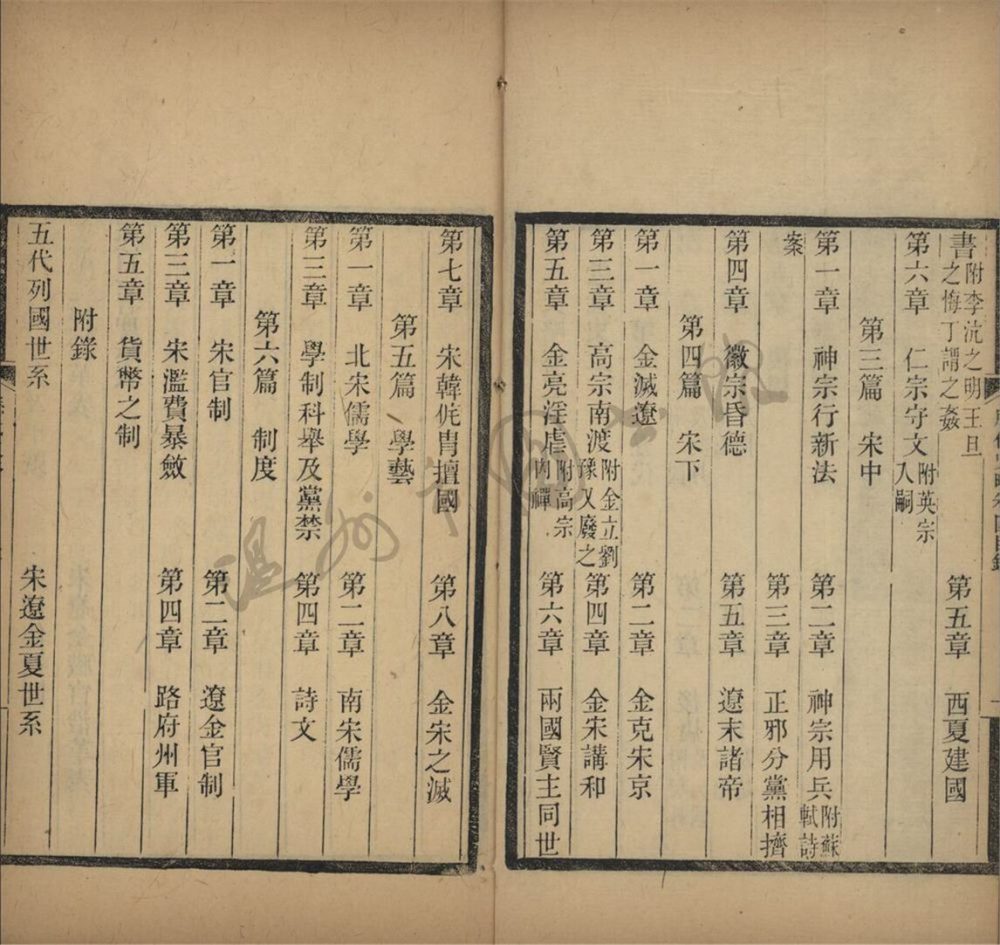 書附李沆之明王旦之悔丁謂之姦 第五章 西夏建國
第六章 仁宗守文附英宗入嗣
第三篇 宋中
第一章 神宗行新法 第二章 神宗用兵附蘇軾詩
案 第三章 正邪分黨相擠
第四章 徽宗昏德 第五章 遼末諸帝
第四篇 宋下
第一章 金滅遼 第二章 金克宋京
第三章 高宗南渡附金立劉豫又廢之 第四章 金宋講和
第五章 金亮淫虐附高宗內禪 第六章 兩國賢主同世
第七章 宋韓侂冑擅國 第八章 金宋之滅
第五篇 學藝
第一章 北宋儒學 第二章 南宋儒學
第三章 學制科舉及黨禁 第四章 詩文
第六篇 制度
第一章 宋官制 第二章 遼金官制
第三章 宋濫費暴斂 第四章 路府州軍
第五章 貨幣之制
附錄
五代列國世系 宋遼金夏世系